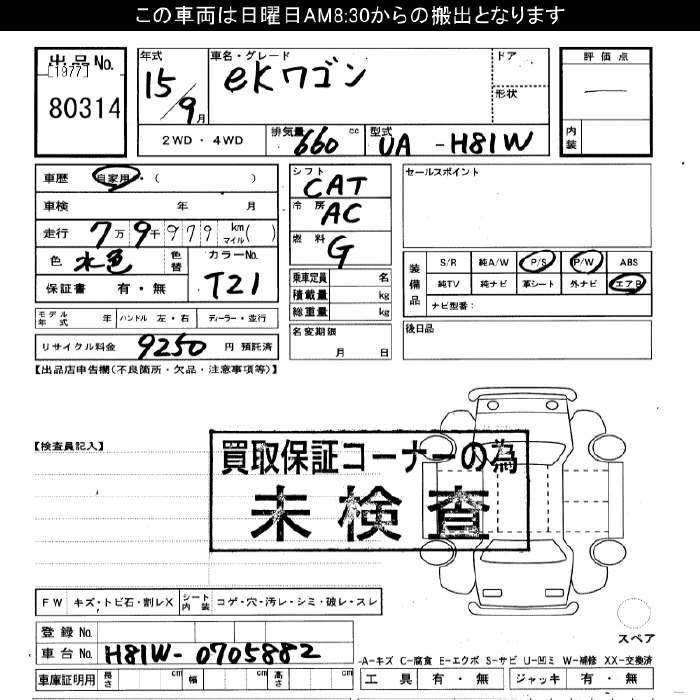 この車両は日曜日AM8:30からの搬出となります
出品No.
[1977]
80314
年式 15/9月
車名・グレード ekワゴン
ドア
形状
評価点
内装
2WD・4WD
排気量 660 cc
型式 UA-H81W
車歴 自家用・( )
車検 年 月
走行 7万9千979 km マイル( )
色 水色 色替 カラーNo. T21
保証書 有・無
シフト CAT
冷房 AC
燃料 G
乗車定員 名
積載量 kg
総重量 kg
セールスポイント
装備品
S/R 純A/W P/S P/W ABS
純TV 純ナビ 革シート 外ナビ エアB
ナビ型番:
モデル年式 年 ハンドル 左・右 ディーラー・並行
名変期限 月 日
後日品
リサイクル料金 9250 円 預託済
【出品店申告欄(不良箇所・欠品・注意事項等)】
【検査員記入】
買取保証コーナーの為
未検査
FW キズ・トビ石・割レX シート内装 コゲ・穴・汚レ・シミ・破レ・スレ
スペア
登録No.
車台No. H81W-0705882
-A-キズ C-腐食 E-エクボ S-サビ U-凹ミ W-補修 XX-交換済
車庫証明用 長さ cm 幅 cm 高さ cm
工具 有・無 ジャッキ 有・無